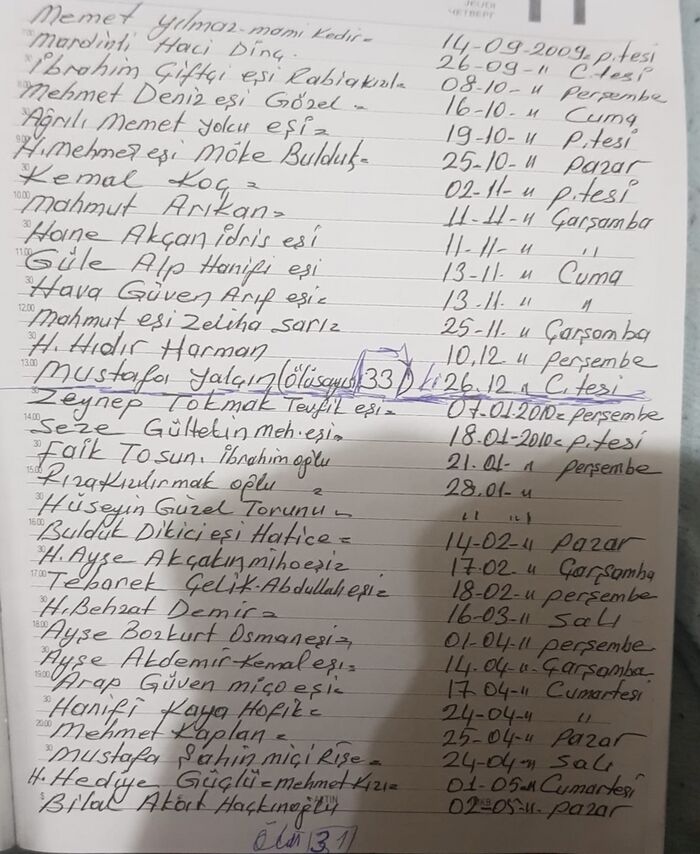 JEUDI
ЧЕТВЕРГ
Memet yılmaz-mami Kedir= 14-09-2009= p.tesi
Mardinli Haci Dinç. 26-09-" C.tesi
İbrahim Çiftçi eşi Rabiakızı= 08-10-" perşembe
Mehmet Deniz eşi Gözel = 16-10-" Cuma
Ağrılı Memet yolcu eşi= 19-10-" P.tesi
H.Mehmet eşi Möke Bulduk= 25-10-" pazar
Kemal Koç = 02-11-" p.tesi
Mahmut Arıkan= 11-11-" Çarşamba
Hane Akçan idris eşi 11-11-" "
Güle Alp Hanifi eşi 13-11-" Cuma
Hava Güven Arif eşi= 13-11-" "
Mahmut eşi Zeliha Sarı= 25-11-" Çarşamba
H. Hıdır Harman 10.12-" perşembe
Mustafa Yalçın (ölüsayısı 33) 26.12-" C.tesi
Zeynep Tokmak Tevfik eşi= 07-01-2010= perşembe
Seze Gültekin Meh.eşi= 18-01-2010= p.tesi
Faik Tosun. İbrahim oğlu 21-01-" perşembe
Rıza Kızılırmak oğlu = 28.01-"
Hüseyin Güzel Torunu= " "
Bulduk Dikici eşi Hatice= 14-02-" pazar
H. Ayşe Akçakın miho eşi= 17.02-" Çarşamba
Tebarek Çelik-Abdullah eşi= 18-02-" perşembe
H. Behzat Demir= 16-03-" Salı
Ayşe Bozkurt Osman eşi= 01-04-" perşembe
Ayşe Akdemir-Kemal eşi= 14-04-" Çarşamba
Arap Güven miço eşi= 17-04-" Cumartesi
Hanifi Kaya Hofik= 24-04-" "
Mehmet Kaplan= 25-04-" pazar
Mustafa Şahin miçi Rişe= 24-04-" Salı
H. Hediye Güçlü=Mehmet Kızı= 01-05-" Cumartesi
Bilal Akort Haçkınoğlu 02-05-" pazar
Ölü 31